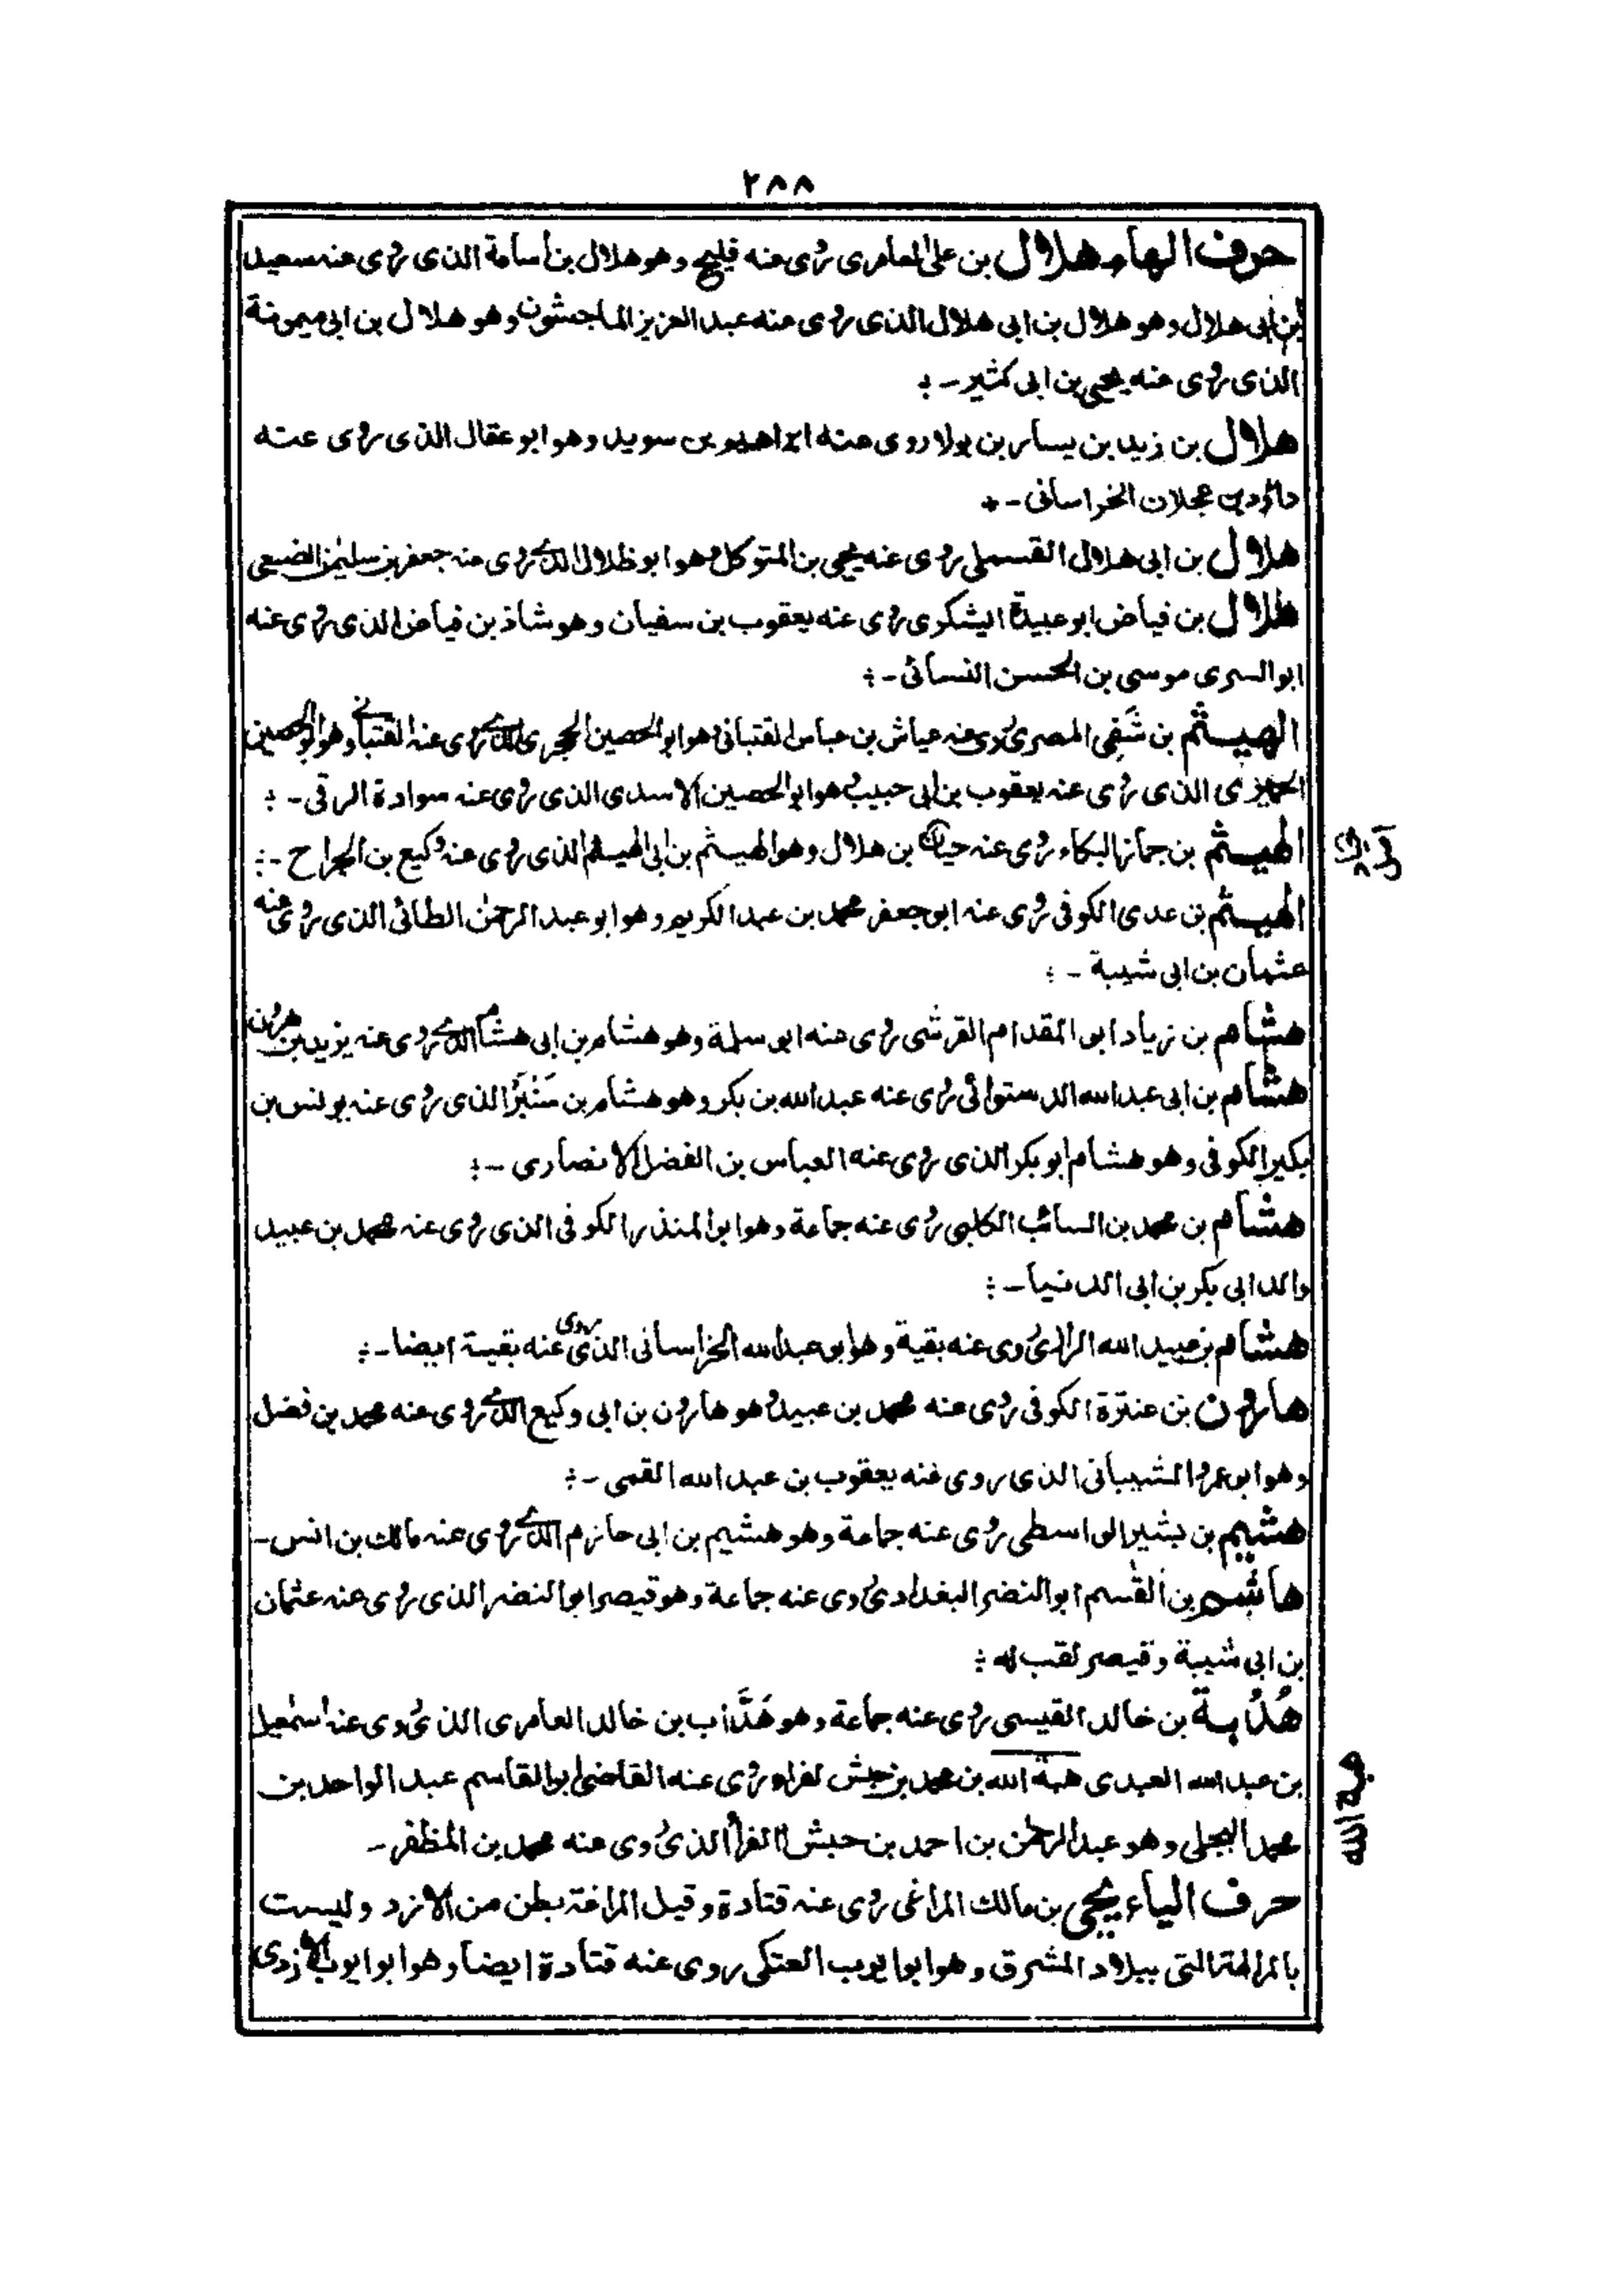 ٢٨٨
حرف الهاء هلال بن علي العامري روى عنه فليح وهو هلال بن أسامة الذي روى عنه سعيد
بن أبي هلال وهو هلال بن ابي هلال الذي روى عنه عبد العزيز الماجشون وهو هلال بن ابي ميمونة
الذي روى عنه يحيى بن ابي كثير ـ
هلال بن زيد بن يسار بن بولا روى عنه ابراهيم بن سويد وهو ابو عقال الذي روى عنه
داؤد بن عجلان الخراساني ـ
هلال بن ابي هلال القسملي روى عنه يحيى بن المتوكل وهو ابو ظلال الذي روى عنه جعفر بن سليمٰن الضبعي
هلال بن فياض ابو عبيدة اليشكري روى عنه يعقوب بن سفيان وهو شاذ بن فياض الذي روى عنه
ابو السري موسى بن الحسن النسائي ـ
الهيثم بن شَفِي المصري روى عنه عياش بن عباس القتباني وهو ابو الحصين الحجري الذي روى عنه القتباني وهو ابو الحصين
الذي روى عنه يعقوب بن ابي حبيب وهو ابو الحصين الاسدي الذي روى عنه سوادة الرقي ـ
الهيثم بن جماز البكاء روى عنه حبان بن هلال وهو الهيثم بن ابي الهيثم الذي روى عنه وكيع بن الجراح ـ
الهيثم بن عدي الكوفي روى عنه ابو جعفر محمد بن عبد الكريم وهو ابو عبد الرحمٰن الطائي الذي روى عنه
عثمان بن ابي شيبة ـ
هشام بن زياد ابو المقدام القرشي روى عنه ابو سلمة وهو هشام بن ابي هشام الذي روى عنه يزيد بن هرون
هشام بن ابي عبد الله الدستوائي روى عنه عبد الله بن بكر وهو هشام بن سَنْبَرْ الذي روى عنه يونس بن
بكير الكوفي وهو هشام ابو بكر الذي روى عنه العباس بن الفضل الانصاري ـ
هشام بن محمد بن السائب الكلبي روى عنه جماعة وهو ابو المنذر الكوفي الذي روى عنه محمد بن عبيد
والد ابي بكر بن ابي الدنيا ـ
هشام بن عبيد الله الرازي روى عنه بقية وهو ابو عبد الله الخراساني الذي روى عنه بقية ايضا ـ
هارون بن عنترة الكوفي روى عنه محمد بن عبيد وهو هارون بن ابي وكيع الذي روى عنه محمد بن فضل
وهو ابو عمرو الشيباني الذي روى عنه يعقوب بن عبد الله القمي ـ
هشيم بن بشير الواسطي روى عنه جماعة وهو هشيم بن ابي حازم الذي روى عنه مالك بن انس ـ
هاشم بن القٰسم ابو النضر البغدادي روى عنه جماعة وهو قيصر ابو النضر الذي روى عنه عثمان
بن ابي شيبة وقيصر لقب له
هُدْبة بن خالد القيسي روى عنه جماعة وهو هَدَّاب بن خالد العامري الذي روى عنه اسمٰعيل
بن عبد الله العبدي هبة الله بن محمد بن حبش الفراء روى عنه القاضي ابو القاسم عبد الواحد بن
محمد البجلي وهو عبد الرحمٰن بن احمد بن حبش الفرا الذي روى عنه محمد بن المظفر ـ
حرف الياء يحيى بن مالك المراغي روى عنه قتادة وقيل المراغة بطن من الازد وليست
بالمراغة التي ببلاد المشرق وهو ابو ايوب العتكي روى عنه قتادة ايضا وهو ابو ايوب الازدي